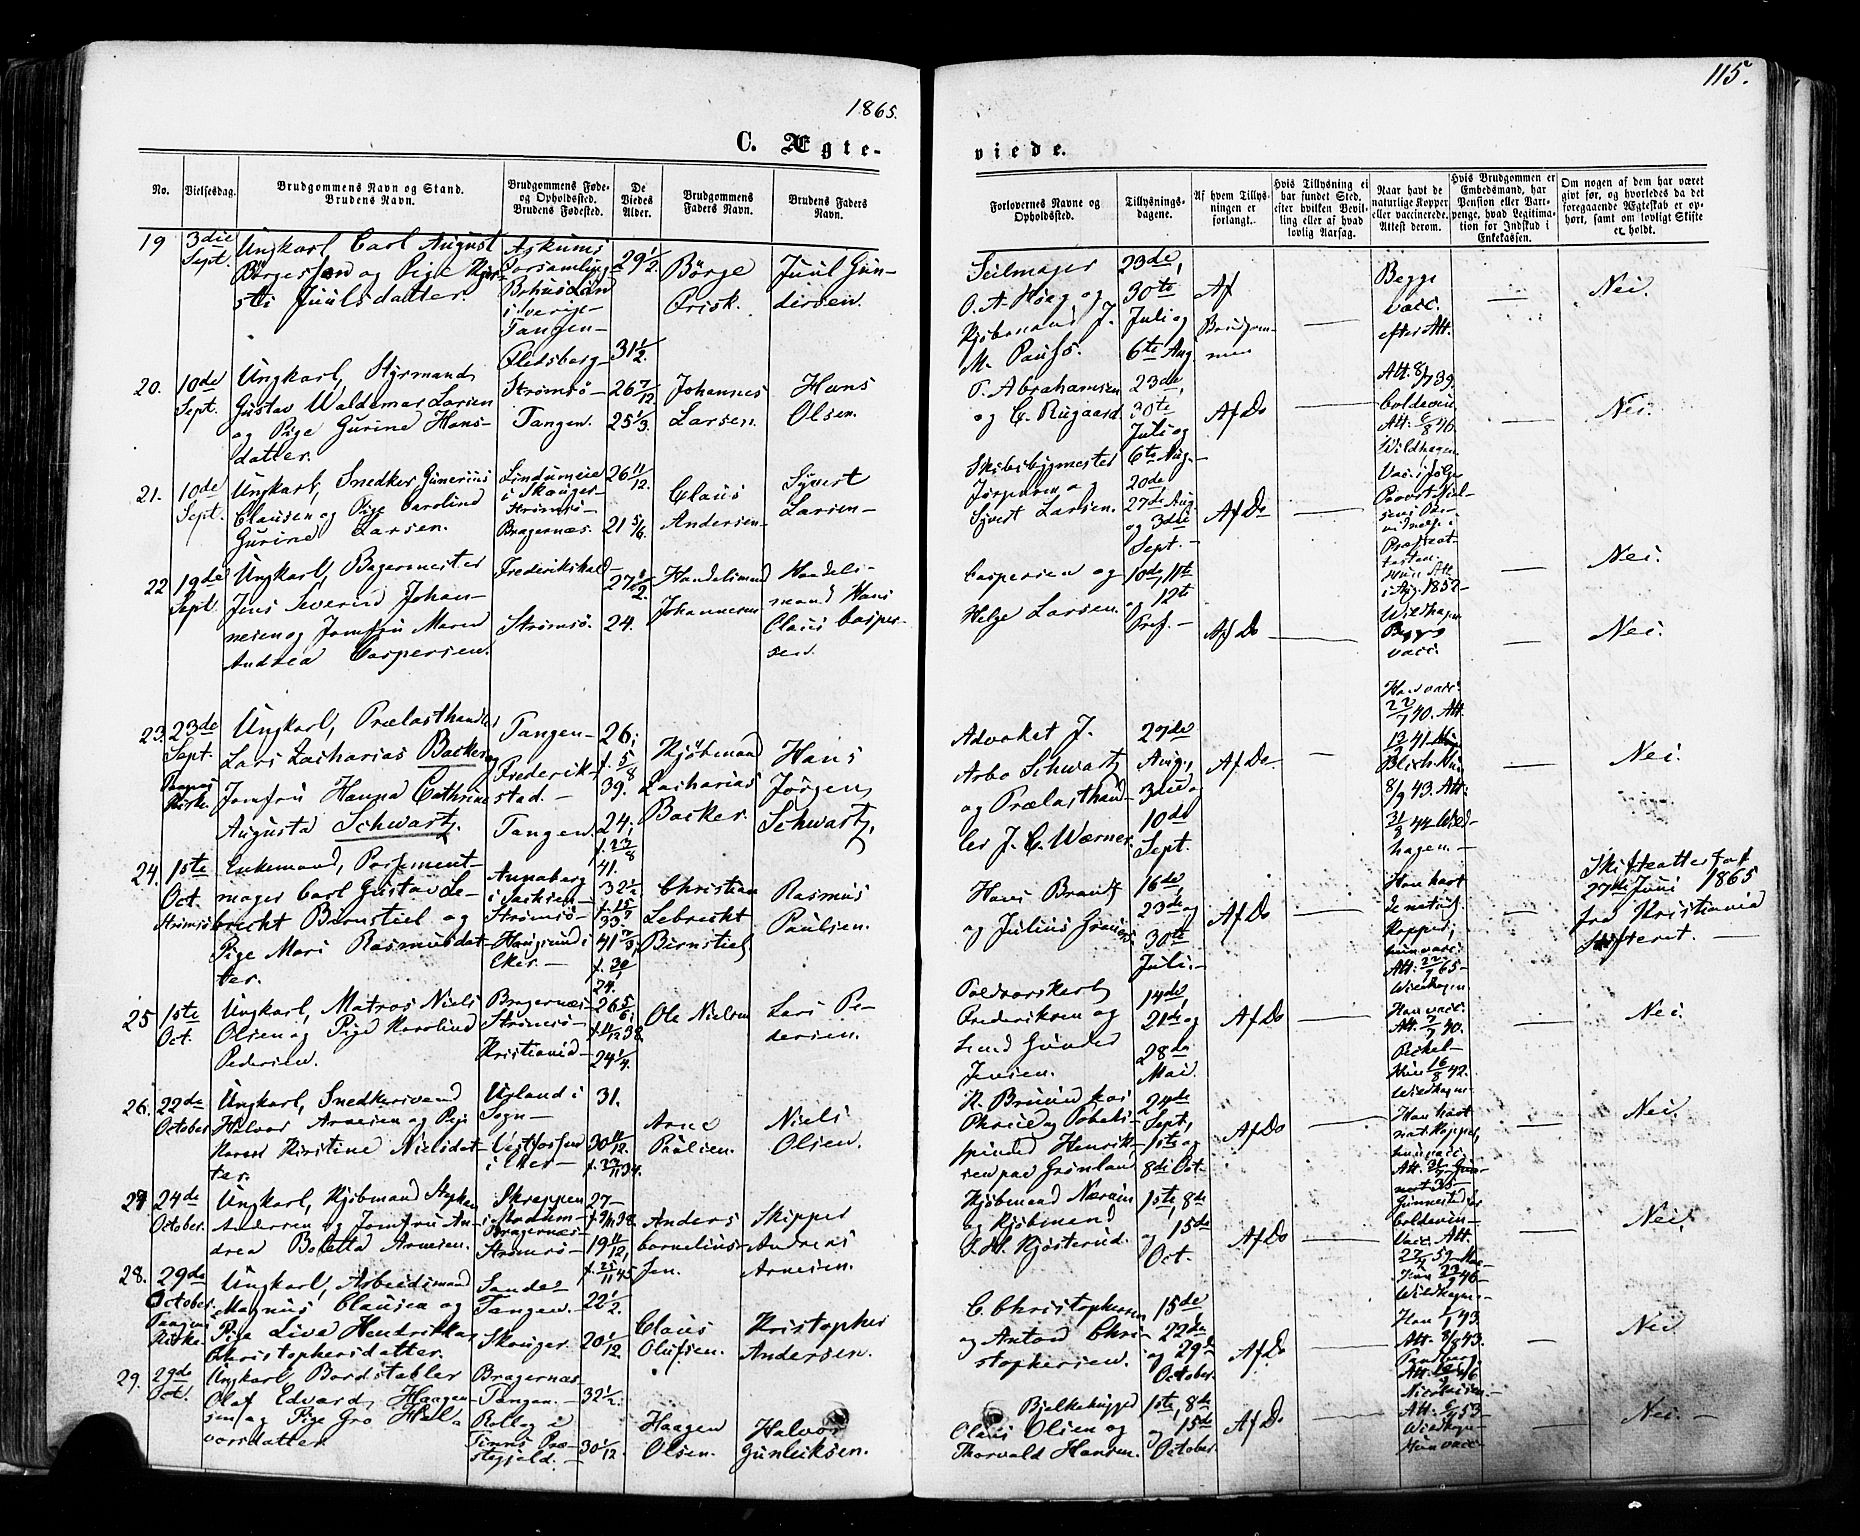 1865.
115.
C. Ægte-
viede.
No.
Vielsesdag.
Brudgommens Navn og Stand.
Brudens Navn.
Brudgommens Føde-
og Opholdssted.
Brudens Fødested.
De
Viedes
Alder.
Brudgommens
Faders Navn.
Brudens Faders
Navn.
Forlovernes Navne og
Opholdssted.
Tillysnings-
dagene.
Af hvem Tillys-
ningen er
forlangt.
Hvis Tillysning ei
har fundet Sted,
efter hvilken Bevil-
ling eller af hvad
lovlig Aarsag.
Naar havt de
naturlige Kopper
eller vaccinerede.
Attest derom.
Hvis Brudgommen er
Embedsmand, har
Pension eller Vart-
penge, hvad Legitima-
tion for Indskud i
Enkekassen.
Om nogen af dem har været
givt før, og hvorledes da det
foregaaende Ægteskab er op-
hørt, samt om lovligt Skifte
er holdt.
19
3die
Sept.
Ungkarl Carl August
Børgesson og Pige Kjer-
sti Juulsdatter.
Askums
Forsamling
Bohuslän
i Sverige-
Tangen-
Flesberg-
29 1/2.
31 1/2.
Børge
Frisk.
Juul Gun-
dersen.
Seilmager
O. A. Høeg og
Kjøbmand J.
M. Paufs.
23de,
30te
Juli og
6te Aug
Af
Brudgom-
men
Begge
vacc.
efter Att.
Nei.
20.
10de
Sept.
Ungkarl, Styrmand
Gustav Waldemar Larsen
og Pige Gurine Hans-
datter.
Strømsø-
Tangen.
26 7/12
25 1/3.
Johannes
Larsen.
Hans
Olsen.
T. Abrahamsen
og C. Rugaard
23de,
30te
Juli og
6te Aug.
Af Do
Att. 8/7 39.
Coldevin
Att. 6/8 46.
Wildhagen
Nei.
21.
10de
Sept.
Ungkarl, Snedker Gunerius
Clausen og Pige Caroline
Gurine Larsen.
Lindumeie
i Skouger-
Strømsø-
Bragernæs.
26 11/12.
21 5/6.
Claus
Andersen-
Syvert
Larsen-
Skibsbygmester
Jørgensen og
Syvert Larsen.
20de
27de Aug
og 3die
Sept.-
Af Do
Vacc. ifølge
Provst Niel-
sens
Nei.
22
19de
Sept.
Ungkarl, Bagermester
Jens Severin Johan-
nesen og Jomfru Maren
Andrea Caspersen.
Frederikshald-
Strømsø.
27 1/2.
24.
Handelsmand
Johannesen
Handels-
mand Hans
Claus Casper-
sen.
Caspersen og
Helge Larsen.
10de, 11te
og 12te
Af Do
Begge
vacc.
Nei.
23.
23de
Sept.
Tangens
Kirke.
Ungkarl, Prælasthandler
Lars Zacharias Backer og
Jomfru Hanna Cathrine
Augusta Schwartz.
Tangen-
Frederik-
stad.-
Tangen.
26;
f. 5/8
39.
24;
f. 23/8
41.
Kjøbmand
Zacharias
Backer
Hans
Jørgen
Schwartz.
Advokat J.
Arbo Schwartz
og Prælasthand-
ler J. C. Wærner
27de
Aug.,
3die og
10de
Sept.
Af Do.
Han vacc.
22/7 40. Att.
13/2 41
Blich. Hun
8/9 43. Att.
31/3 44 Wild-
hagen.-
Nei.
24.
1ste
Oct.
Strømsø
Enkemand, Possement-
mager Carl Gustav Le-
brecht Bürnstiel og
Pige Mari Rasmusdat-
ter.
Annaberg
i Sachsen-
Strømsø-
Haugsund i
Eker.-
Christian
Lebrecht
Bürnstiel
Rasmus
Paulsen.
Hans Brandt
og Julius
16de,
23de og
30te
Juli.-
Af Do
Han havt
de naturl.
Kopper,
hun vacc.
Att. 22/7 65-
Wildhagen
Skifteattest af
27de Juni 1865
fra Kristiania
Skifteret.-
25
1ste
Oct.
Ungkarl, Matros Niels
Olsen og Pige Karoline
Pedersen.
Bragernæs-
Strømsø-
Kristiania-
26 5/6;
24 1/4.
Ole Nielsen
Lars Pe-
dersen.
Frederiksen og
Gunder
Jensen.
14de,
21de og
28de
Mai
Af Do
Han vacc.
Att. 7/7 40.
Hun 16/8 42.
Wildhagen
Nei.
26.
22de
October
Ungkarl, Snedkersvend
Halvor Arnesen og Pige
Karen Kirstine Nielsdat-
ter.
Urland i
Sogn-
Vestfossen
i Eker-
31.
30 11/12.
Arne
Paulsen.
Niels
Olsen.
sen paa Grønland
24de
Sept.,
1ste og
8de Oct.
Af Do
Han havt
nat. Kopper,
hun vacc.
Nei.
27
24de
October.
Ungkarl, Kjøbmand Styker
Andersen og Jomfru An-
drea Boletta Arnesen.
Bragernæs-
Strømsø-
27-
19 11/12,
Anders
Cornelius-
sen.
Skipper
Andreas
Arnesen.
Kjøbmand
og Kjøbmand
Kjøsterud.
1ste, 8de
og 15de
Oct.
Af Do
Coldevin-
Vacc. Att.
Wildhagen
Nei.
28.
29de
October.
Tangens
Kirke.
Ungkarl, Arbeidsmand
Magnus Clausen og
Pige Live Hendrikka
Christophersdatter.
Sande-
Tangen.
Skouger.
22 1/2.
20 1/12.
Claus
Olufsen.
Kristopher
Andersen.
C. Christophersen
og Anton Chri-
stophersen.
15de
22de
og 29de
October.
Af Do.
Nei
29.
29de
Oct.
Ungkarl, Bordstabler
Olaf Edvard Haagen-
sen og Pige Gro Hal-
vorsdatter.
Bragernæs
Tangen-
Rollag i
Tinns Præ-
stegjeld.-
32 1/2.
30 1/12.
Haagen
Olsen.
Halvor
Gunleiksen.
Bjelkehugger
Olaus Olsen og
Thorvald Hansen.
1ste, 8de
og 15de
October.
Af Do
Att. 6/6 53-
Wildhagen
Hun vacc.
Nei.-